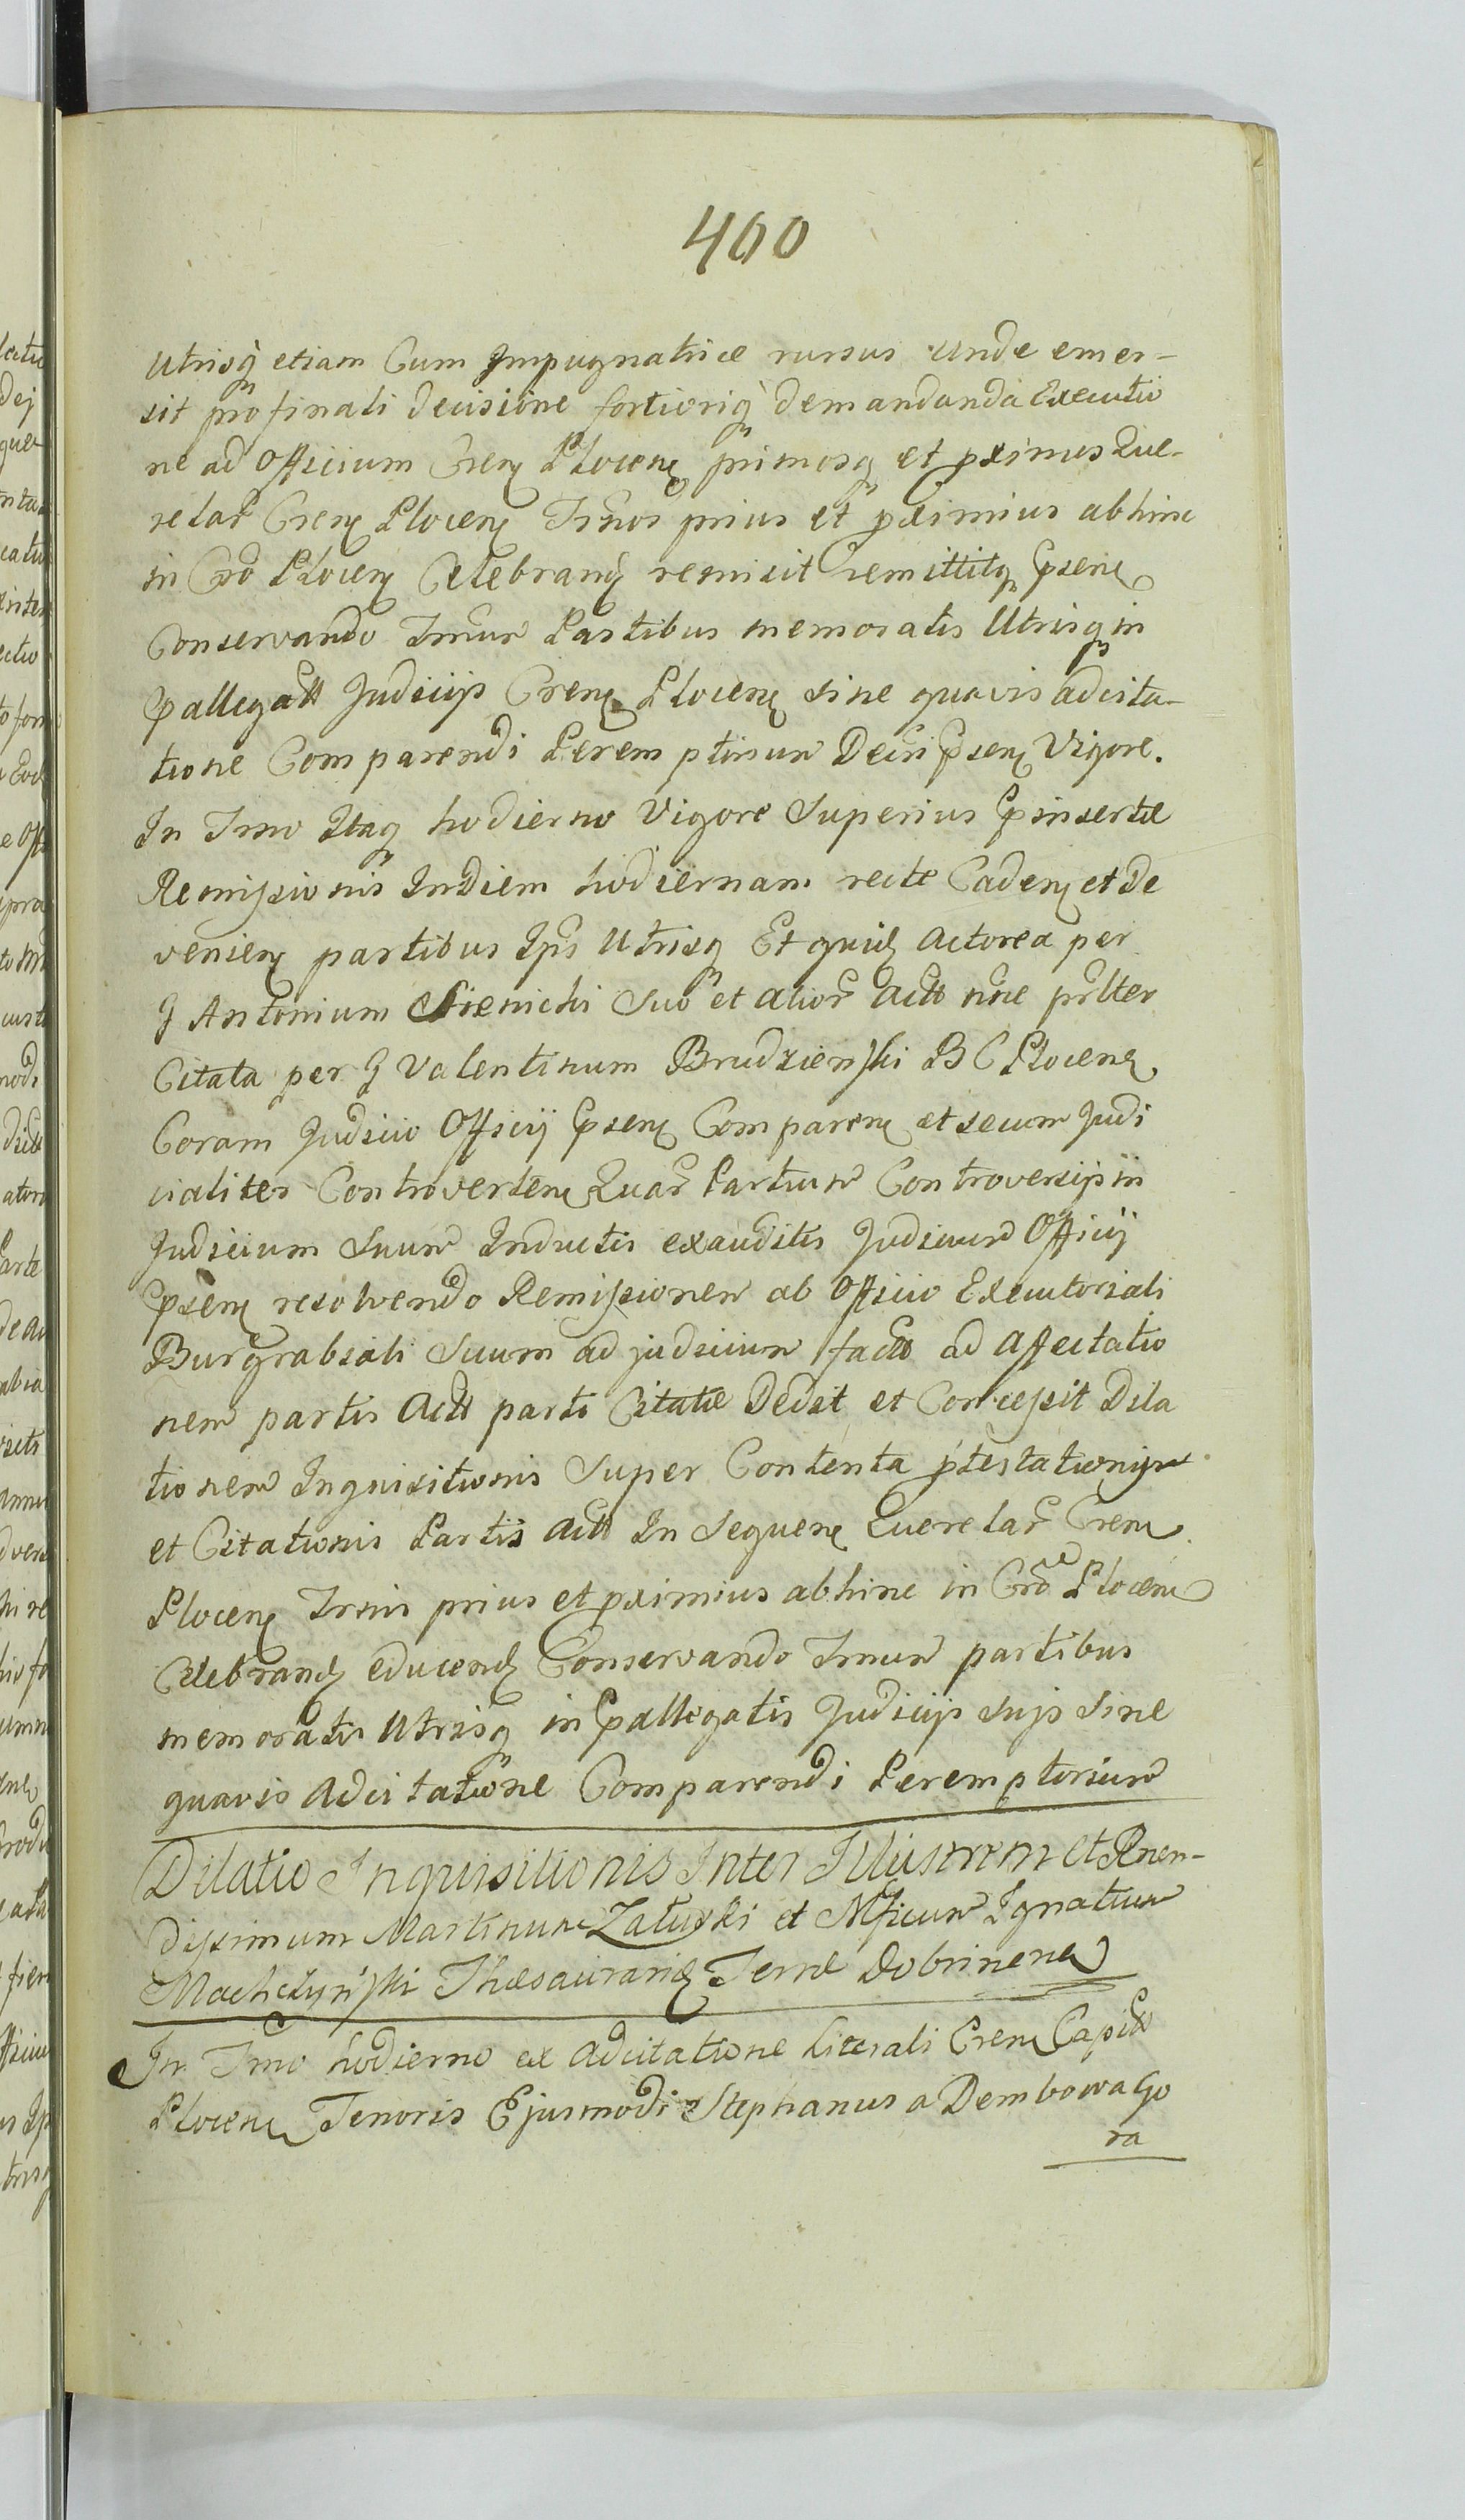 400
Utrisq etiam Cum Impugnatrice rursus Unde emer-
sit pro finali decisione fortioriq demandanda Executio
ne ad Officium Cren Plocen primosq et pximus Que-
relar Cren Plocen Trnos prius et pximius abhinc
in Cro Plocen Celebran remisit remittitq Psen
Conservando Tmum Partibus memoratis Utrisq in
Pallegatt Judiciis Cren Plocen sine quavis adcita-
tione Comparendi Peremptium Decri Psen Vigore.
In Tmo Itaq hodierno Vigore Superius Pinsertæ
Remissionis Indiem hodiernam recte Caden et De
venien partibus Ips Utrisq Et quid Actorea per
G Antonium Sienicki Suo et alior Actt nne prlter
Citata per G Valentinum Brudzienski B C Plocen
Coram Judicio Officij Psen Comparen et secum Judi
cialiter Controverten Quar Partium Controversijs in
Judicium Suum Inductis exauditis Judicium Officij
Psen resolvendo Remissionem ab Officio Executoriali
Burgrabiali Suum ad judicium fact ad Affectatio
nem partis Actt parti Citatæ Dedit et Concessit Dila
tionem Inquisitionis Super Contenta ptestationis
et Citationis Partis Actt In Sequen Querelar Cren
Plocen Trnis prius et pximius abhinc in Cro Plocen
Celebrand educend Conservando Tmum partibus
memoratis Utrisq in Pallegatis Judicijs suis Sine
quavis Adcitatione Comparendi Peremptorium
Dilatio Inquisitionis Inter Illustrem et Rnen-
dissimum Martinum Załuski et Mficum Ignatium
Machczyński Thesaurarium Terræ Dobrinen
In Tmo hodierno ex Adcitatione Literali Cren Capitt
Plocen Tenoris Ejusmodi Stephanus a Dembowa Go
ra